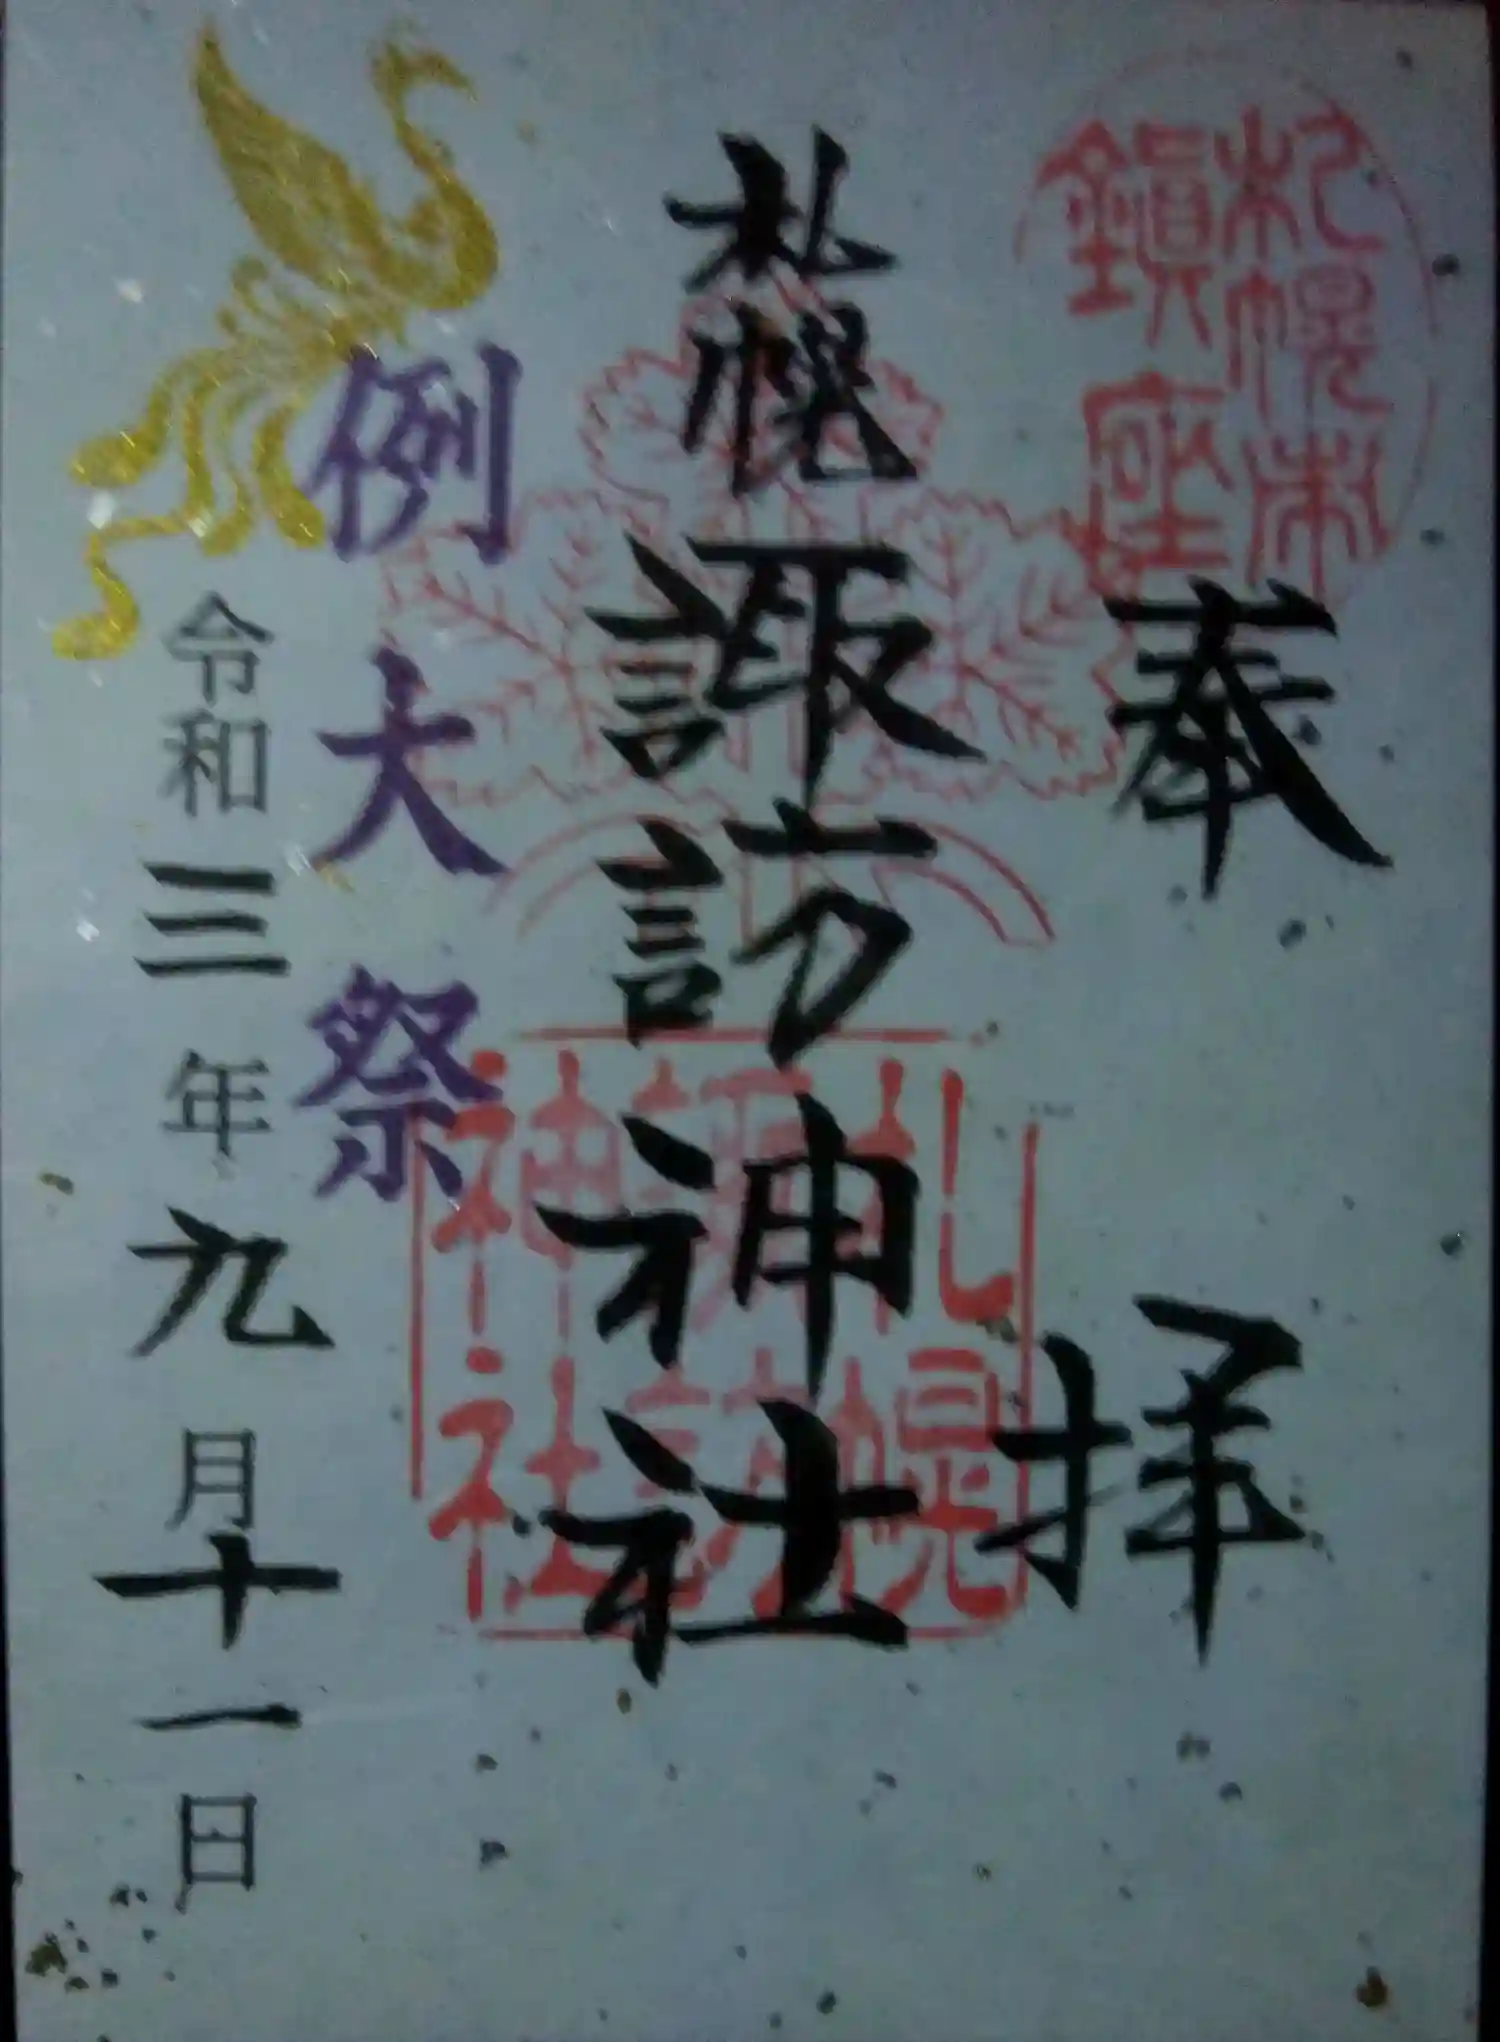 札幌市
鎮座
奉拝
札幌諏訪神社
札幌
諏訪
神社
例大祭
令和三年九月十一日